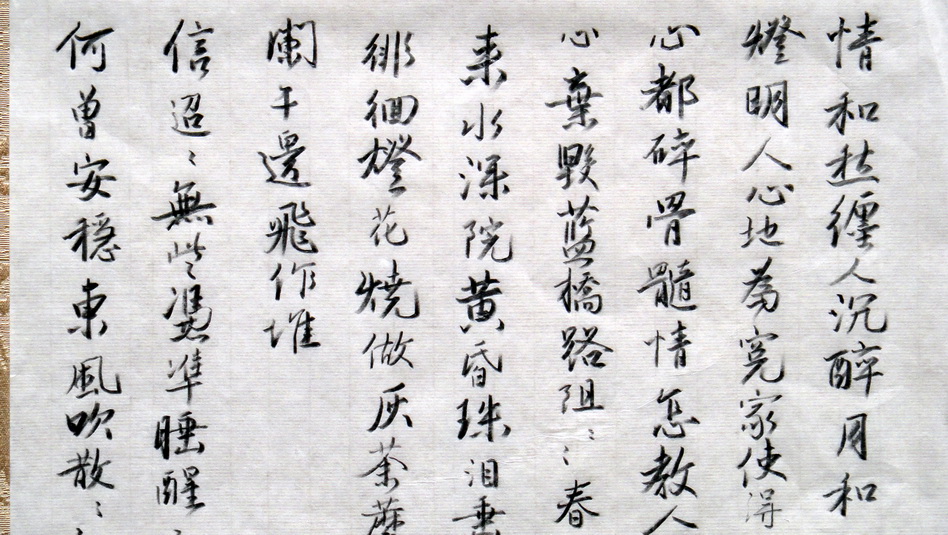 情和愁纏人沉醉月和
燈明人心地為冤家使得
心都碎骨髓情怎教人
心棄毀藍橋路阻〻春
来水深院黄昏珠泪垂
徘徊燈花燒做灰荼蘼
欄干邊飛作堆
信迢〻無些憑準睡醒
何曾安穩東風吹散〻